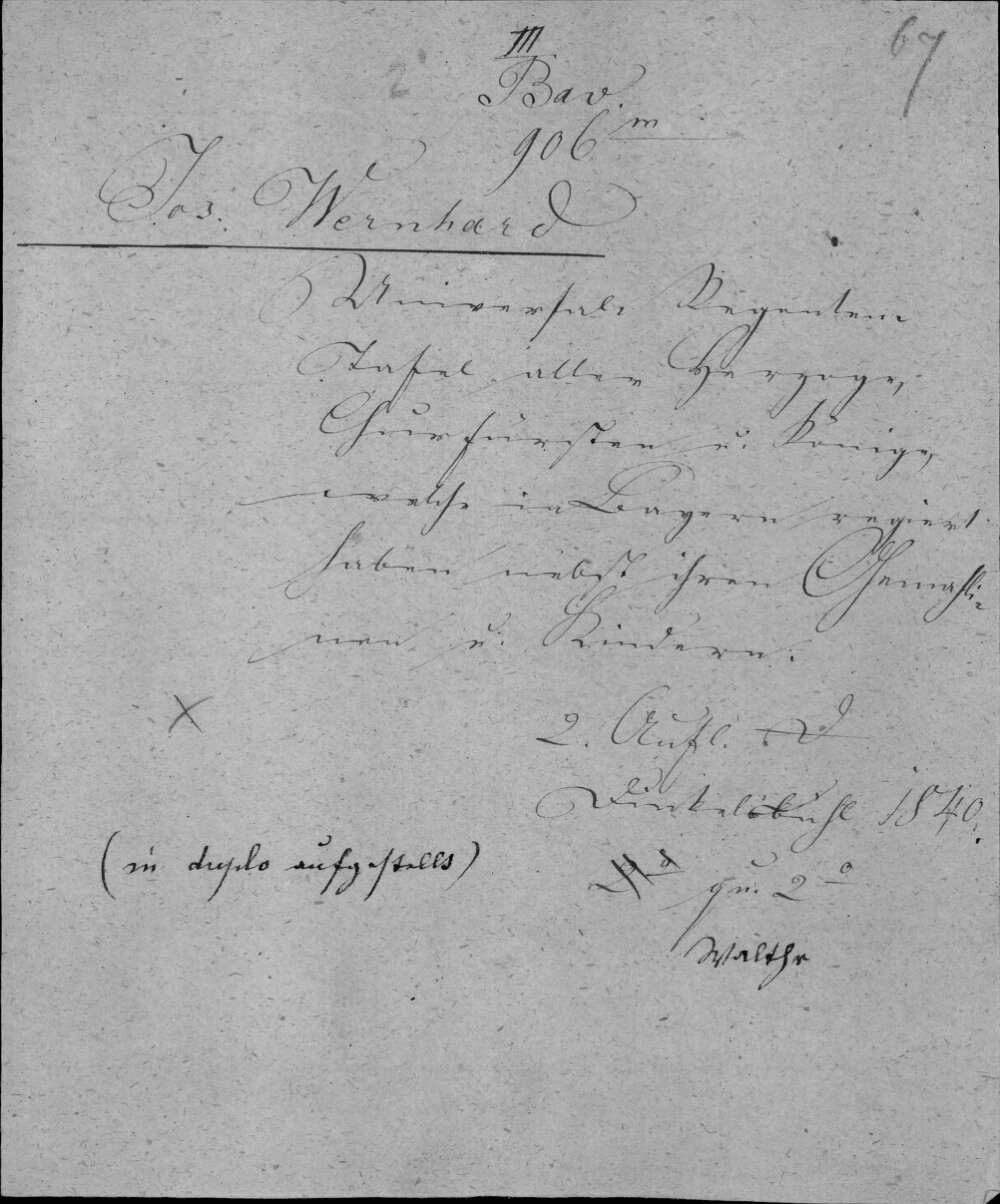 67
III
2
Bav.
906 m
Jos. Wernhard
Universal- Regenten-
Tafel aller Herzoge,
Churfürsten u. Könige,
welche in Bayern regiert
haben nebst ihren Gemahli-
nen u. Kindern.
X
2. Aufl.
Dinkelsbühl 1840.
(in duplo aufgestellt)
qu. 2º
Walthr